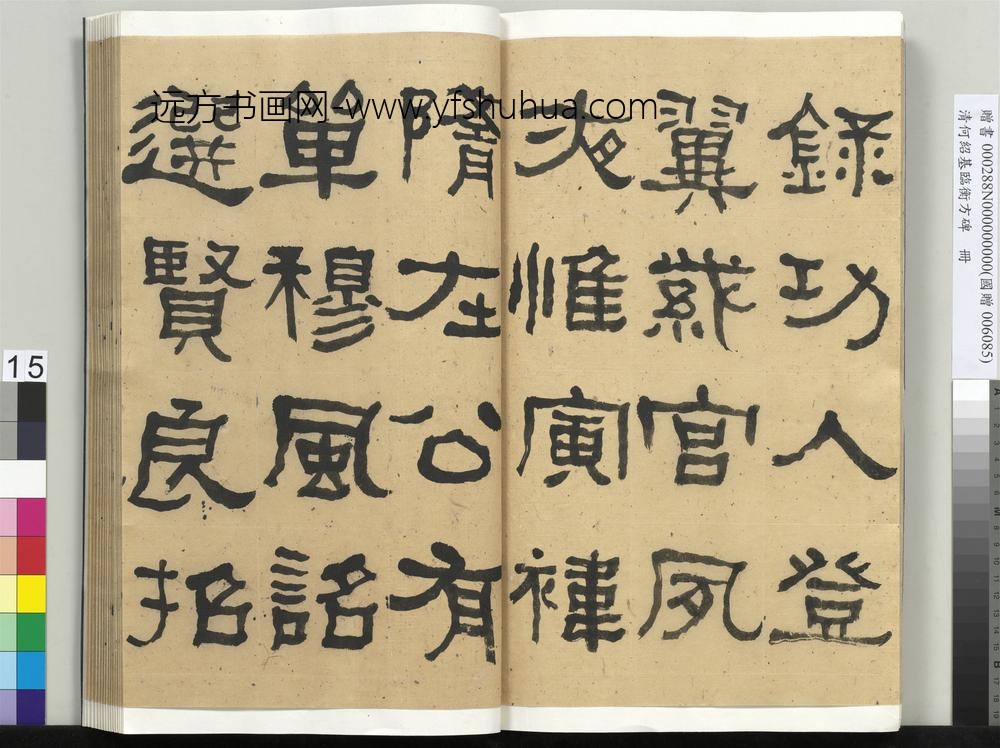 远方书画网-www.yfshuhua.com
錄功入登
翼紫宮夙
夜惟寅褘
隋在公有
單穆風詔
選賢良招
贈書 000288N000000000(國贈 006085)
清何紹基臨衡方碑 冊
15